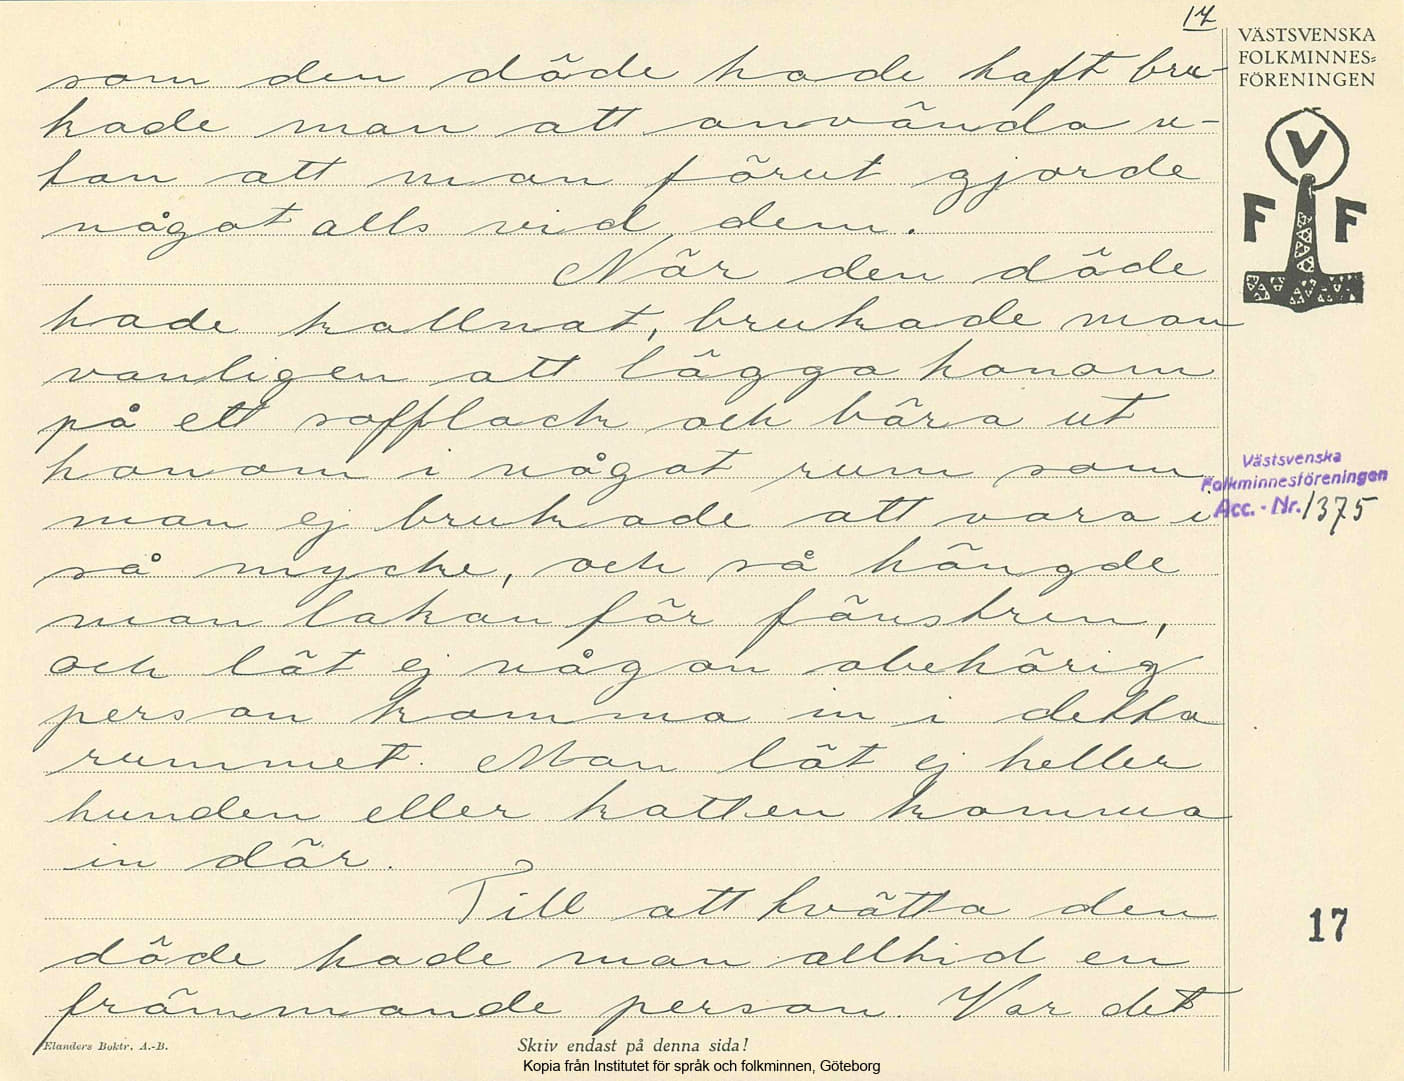 17
VÄSTSVENSKA
FOLKMINNES=
FÖRENINGEN
V
F F
som den döde hade haft bru-
kade man att använda u-
tan att man förut gjorde
något alls vid dem.
När den döde
hade kallnat, brukade man
vanligen att lägga honom
på ett sofflock och bära ut
honom i något rum som
man ej brukade att vara i
så mycke, och så hängde
man lakan för fänstren,
och lät ej någon obehörig
person komma in i detta
rummet. Man lät ej heller
hunden eller katten komma
in där.
Till att tvätta den
döde hade man alltid en
främmande person. Var det
Västsvenska
Folkminnesföreningen
Acc. - Nr. 1375
17
Elanders Boktr. A.-B.
Skriv endast på denna sida!
Kopia från Institutet för språk och folkminnen, Göteborg